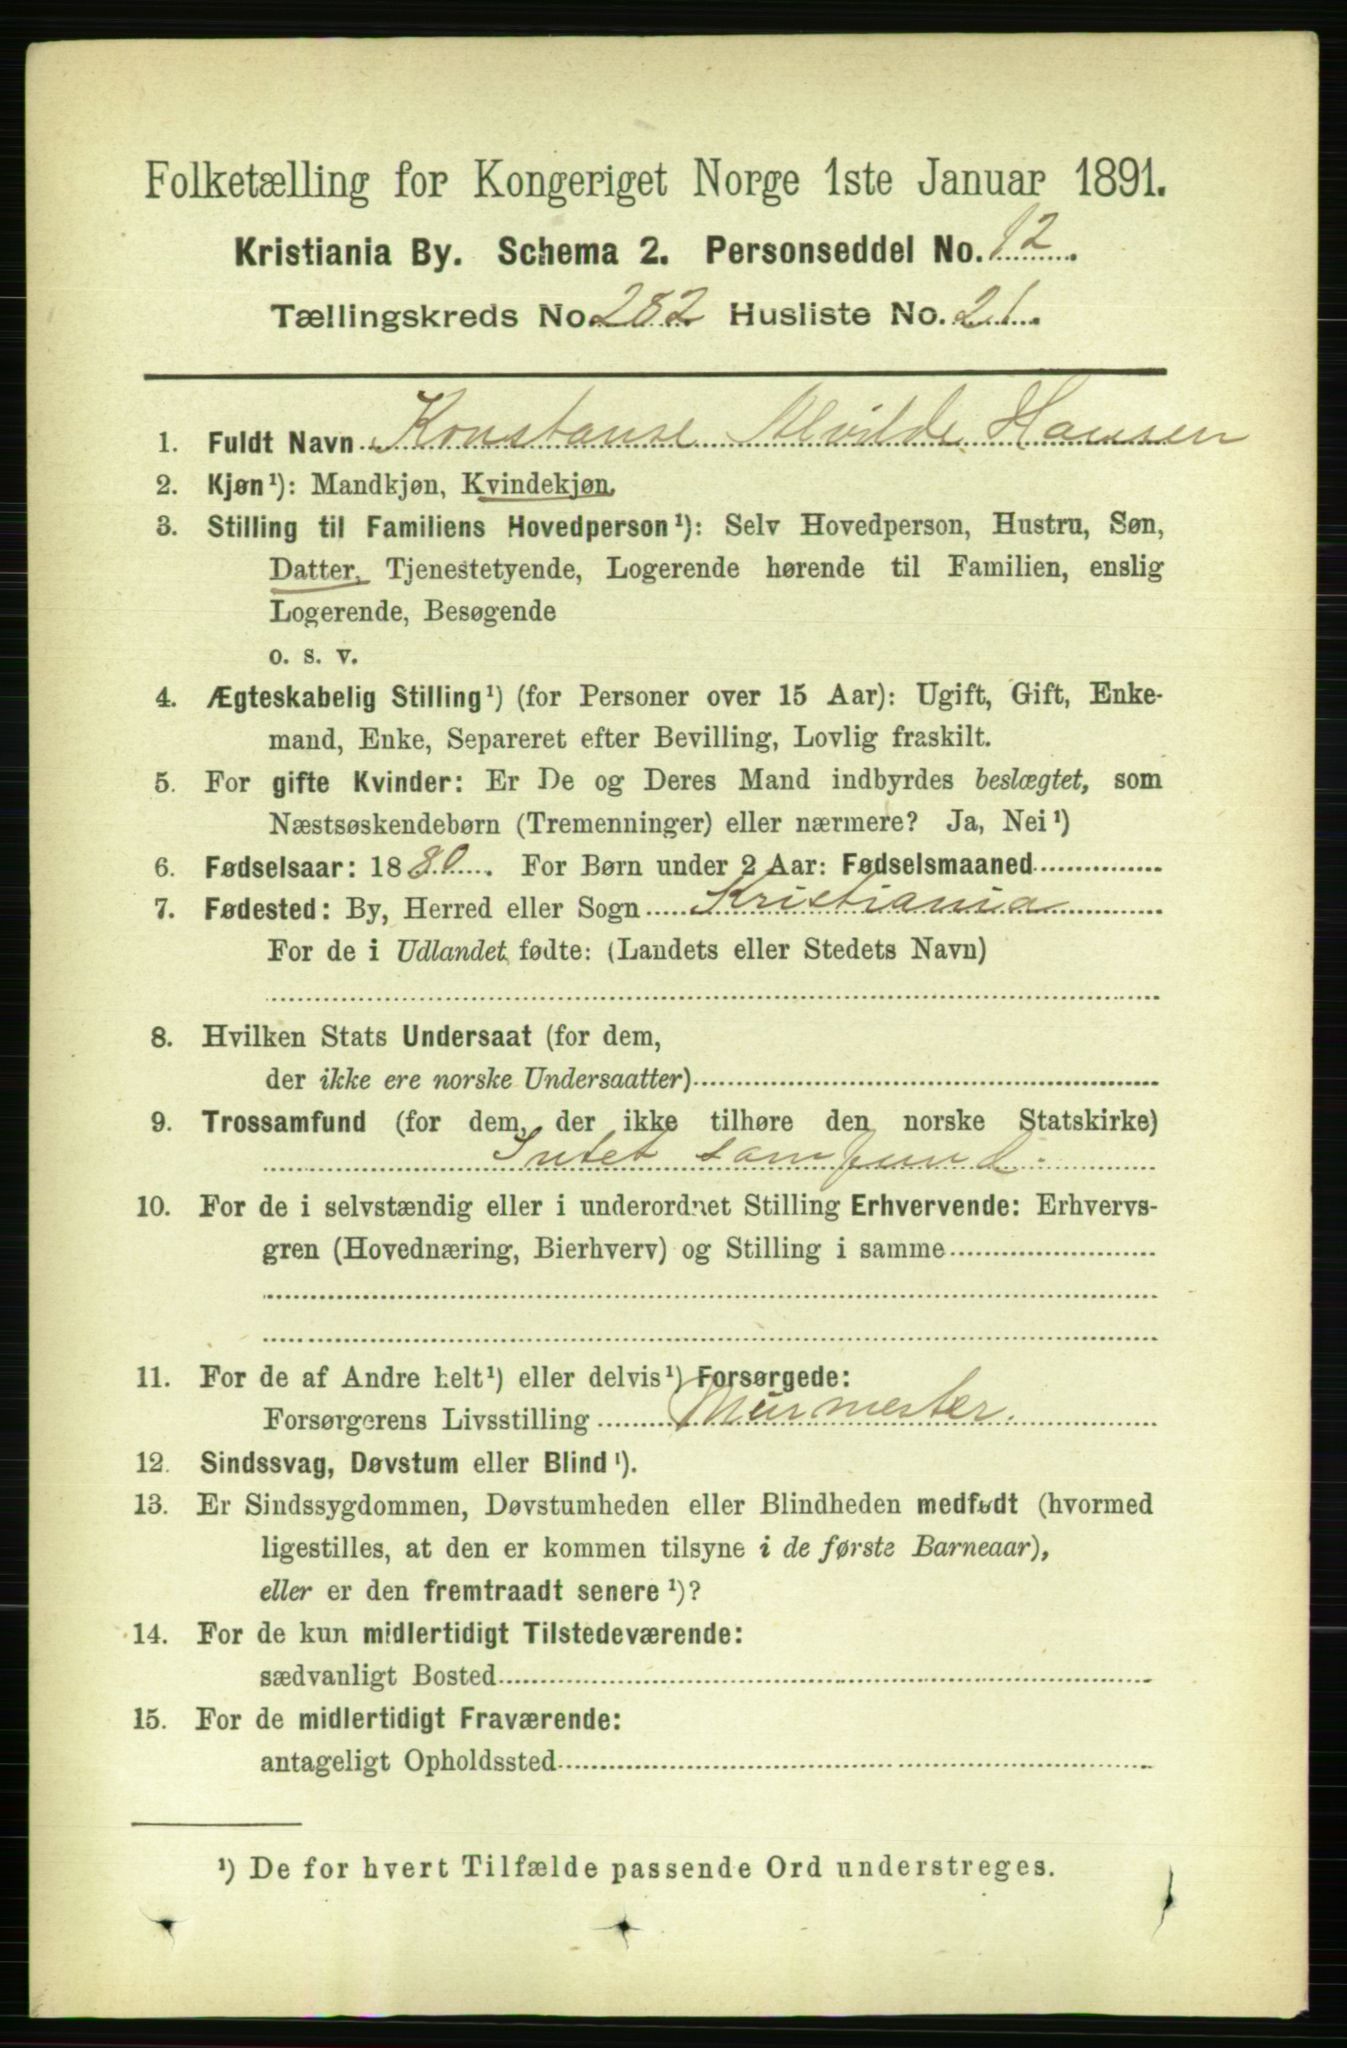 Folketælling for Kongeriget Norge 1ste Januar 1891.
Kristiania By. Schema 2. Personseddel No. 12.
Tællingskreds No. 282 Husliste No. 21.
1. Fuldt Navn Konstanse Alvilde Hansen
2. Kjøn¹): Mandkjøn, Kvindekjøn.
3. Stilling til Familiens Hovedperson¹): Selv Hovedperson, Hustru, Søn,
Datter, Tjenestetyende, Logerende hørende til Familien, enslig
Logerende, Besøgende
o. s. v.
4. Ægteskabelig Stilling¹) (for Personer over 15 Aar): Ugift, Gift, Enke-
mand, Enke, Separeret efter Bevilling, Lovlig fraskilt.
5. For gifte Kvinder: Er De og Deres Mand indbyrdes beslægtet, som
Næstsøskendebørn (Tremenninger) eller nærmere? Ja, Nei¹)
6. Fødselsaar: 1880. For Børn under 2 Aar: Fødselsmaaned
7. Fødested: By, Herred eller Sogn Kristiania
For de i Udlandet fødte: (Landets eller Stedets Navn)
8. Hvilken Stats Undersaat (for dem,
der ikke ere norske Undersaatter)
9. Trossamfund (for dem, der ikke tilhøre den norske Statskirke)
Intet samfund.
10. For de i selvstændig eller i underordnet Stilling Erhvervende: Erhvervs-
gren (Hovednæring, Bierhverv) og Stilling i samme
11. For de af Andre helt¹) eller delvis¹) Forsørgede:
Forsørgerens Livsstilling Murmester.
12. Sindssvag, Døvstum eller Blind¹).
13. Er Sindssygdommen, Døvstumheden eller Blindheden medfødt (hvormed
ligestilles, at den er kommen tilsyne i de første Barneaar),
eller er den fremtraadt senere¹)?
14. For de kun midlertidigt Tilstedeværende:
sædvanligt Bosted
15. For de midlertidigt Fraværende:
antageligt Opholdssted
¹) De for hvert Tilfælde passende Ord understreges.